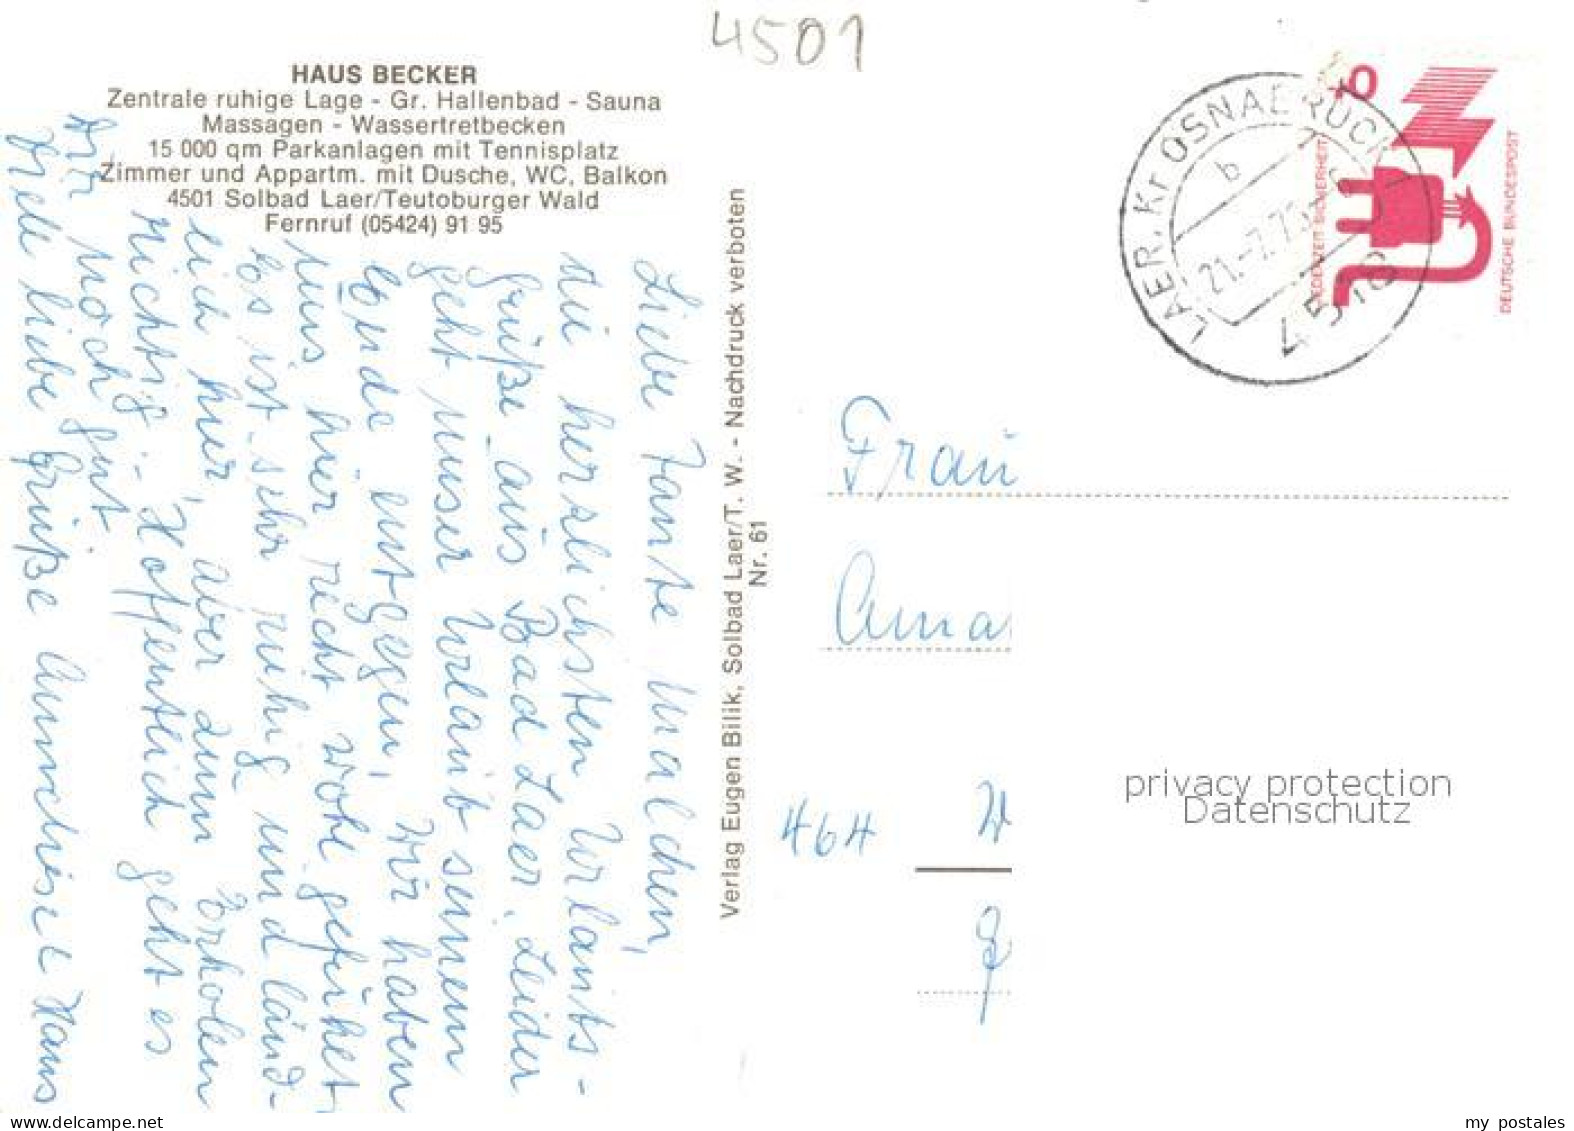 4501
HAUS BECKER
Zentrale ruhige Lage - Gr. Hallenbad - Sauna
Massagen - Wassertretbecken
15 000 qm Parkanlagen mit Tennisplatz
Zimmer und Appartm. mit Dusche, WC, Balkon
4501 Solbad Laer/Teutoburger Wald
Fernruf (05424) 91 95
Liebe Tante Malchen,
die herzlichsten Urlaubs-
grüße aus Bad Laer. Leider
geht unser Urlaub seinem
Ende entgegen, wir haben
uns hier recht wohl gefühlt
Es ist sehr ruhig und länd-
lich hier, aber zum Erholen
richtig. - Hoffentlich geht es
Dir noch gut
Viele liebe Grüße Anneliese Hans
Verlag Eugen Bilik, Solbad Laer/T. W. - Nachdruck verboten
Nr. 61
LAER, Kr OSNABRÜCK
b
21.-7.7
4518
JEDERZEIT SICHERHEIT
DEUTSCHE BUNDESPOST
Frau
Ama
464 W
privacy protection
Datenschutz
my postales